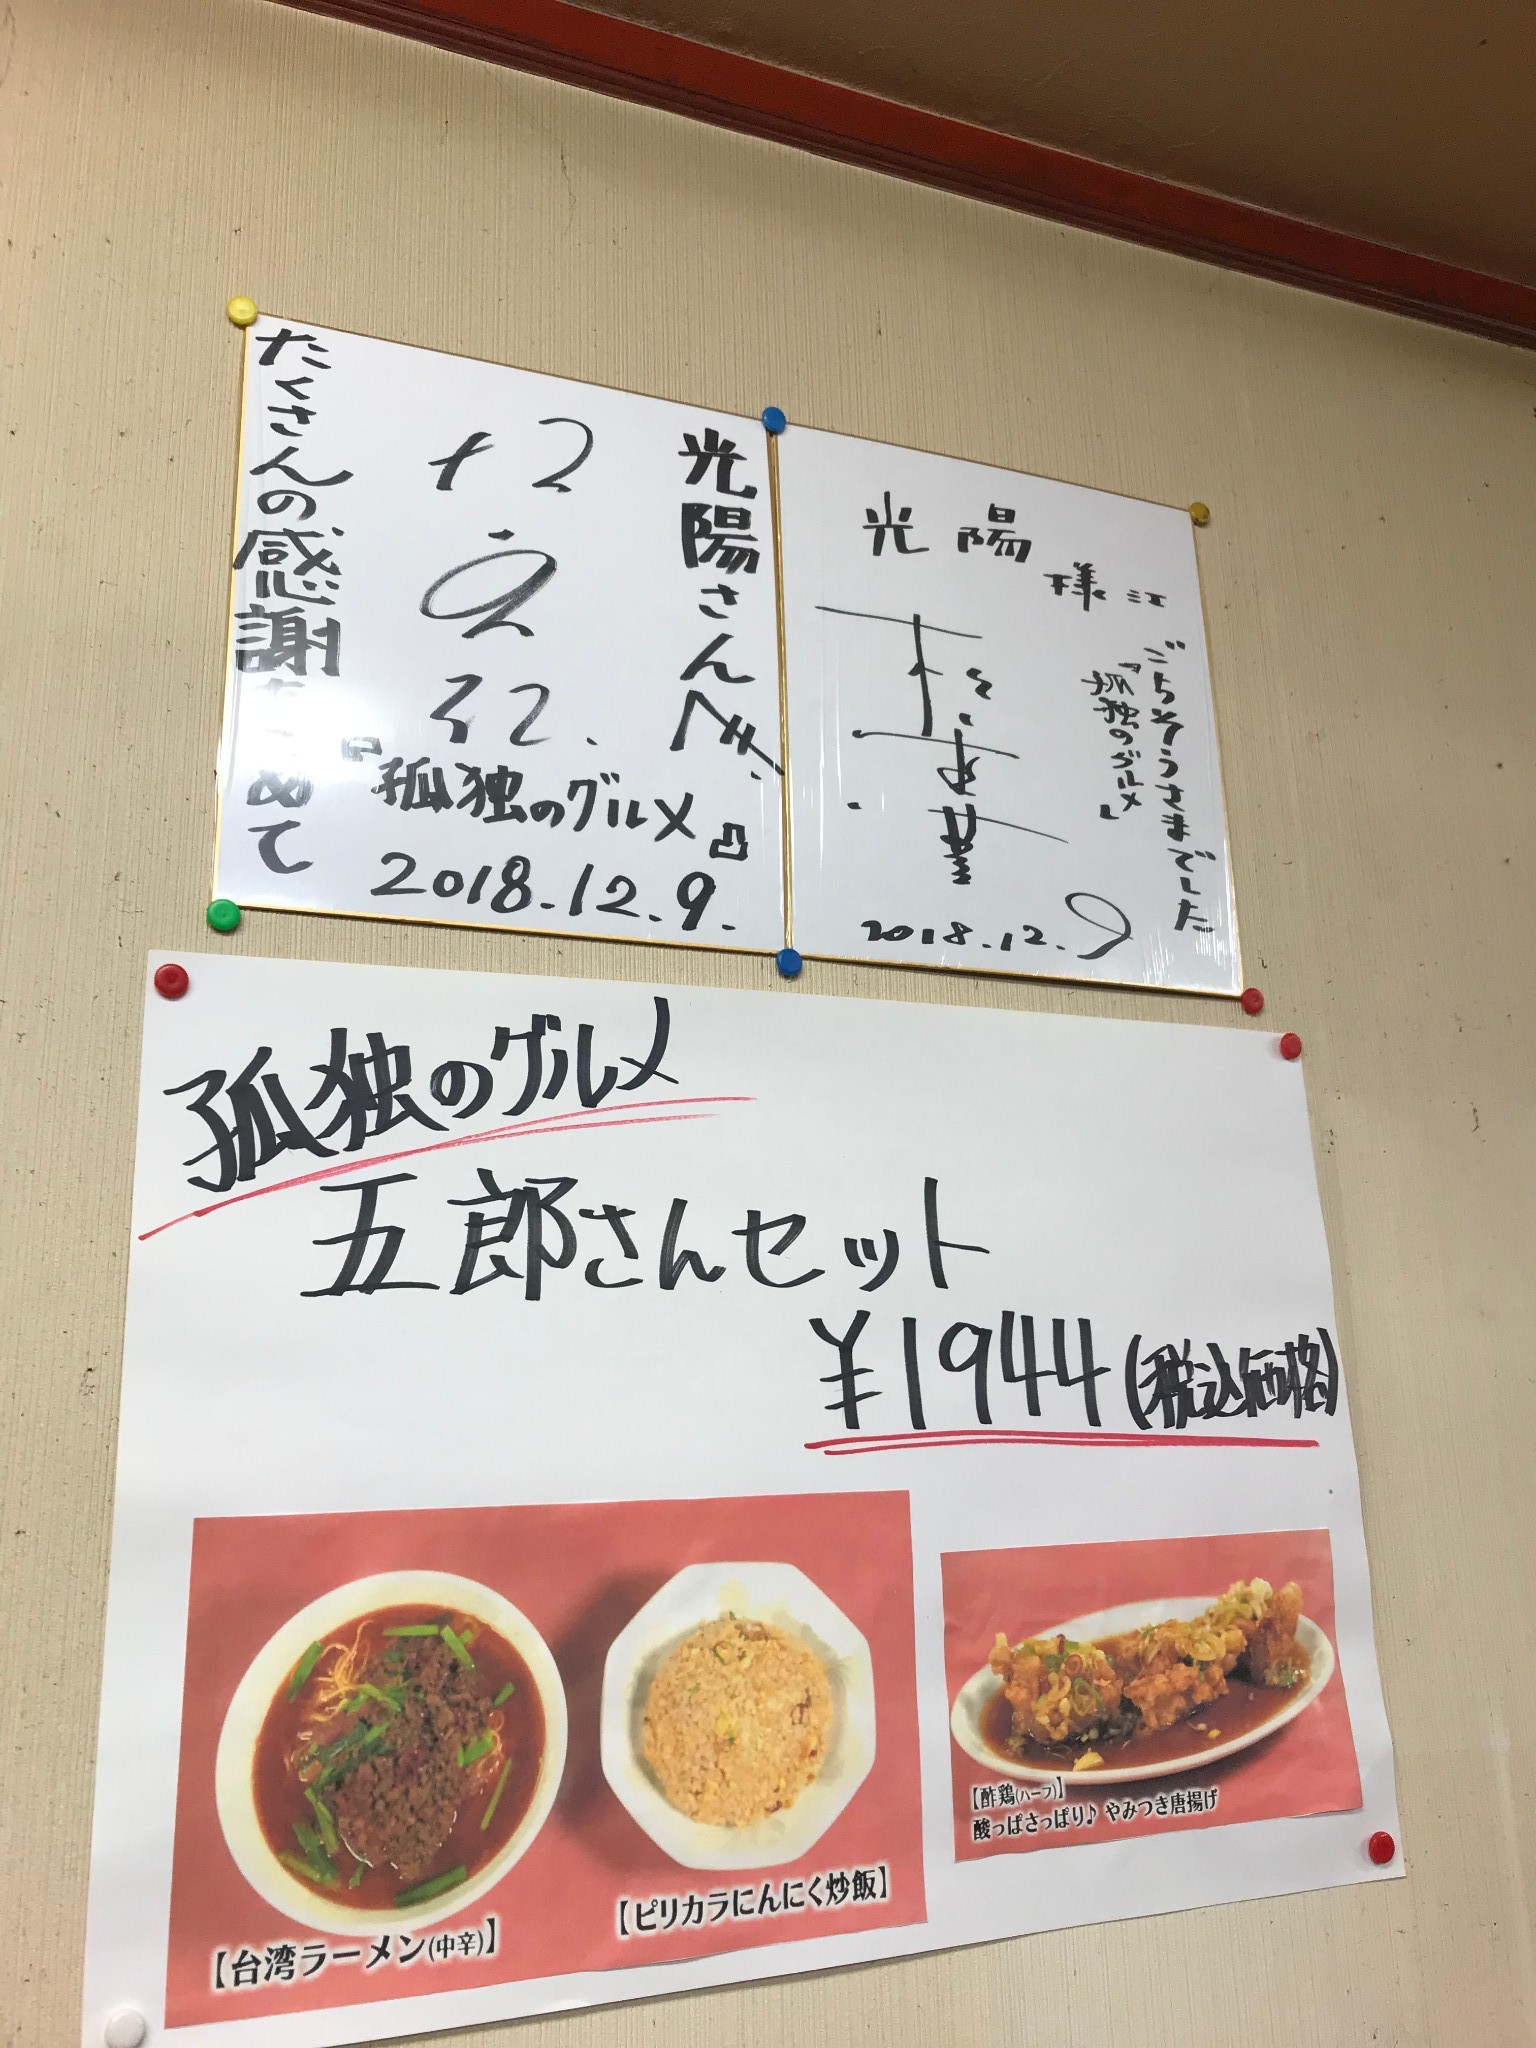 光陽さんへ
たくさんの感謝をこめて
『孤独のグルメ』
2018.12.9.
光陽様江
ごちそうさまでした
『孤独のグルメ』
2018.12.9
孤独のグルメ
五郎さんセット
¥1944(税込価格)
【台湾ラーメン(中辛)】
【ピリカラにんにく炒飯】
【酢鶏(ハーフ)】
酸っぱさっぱり♪ やみつき唐揚げ